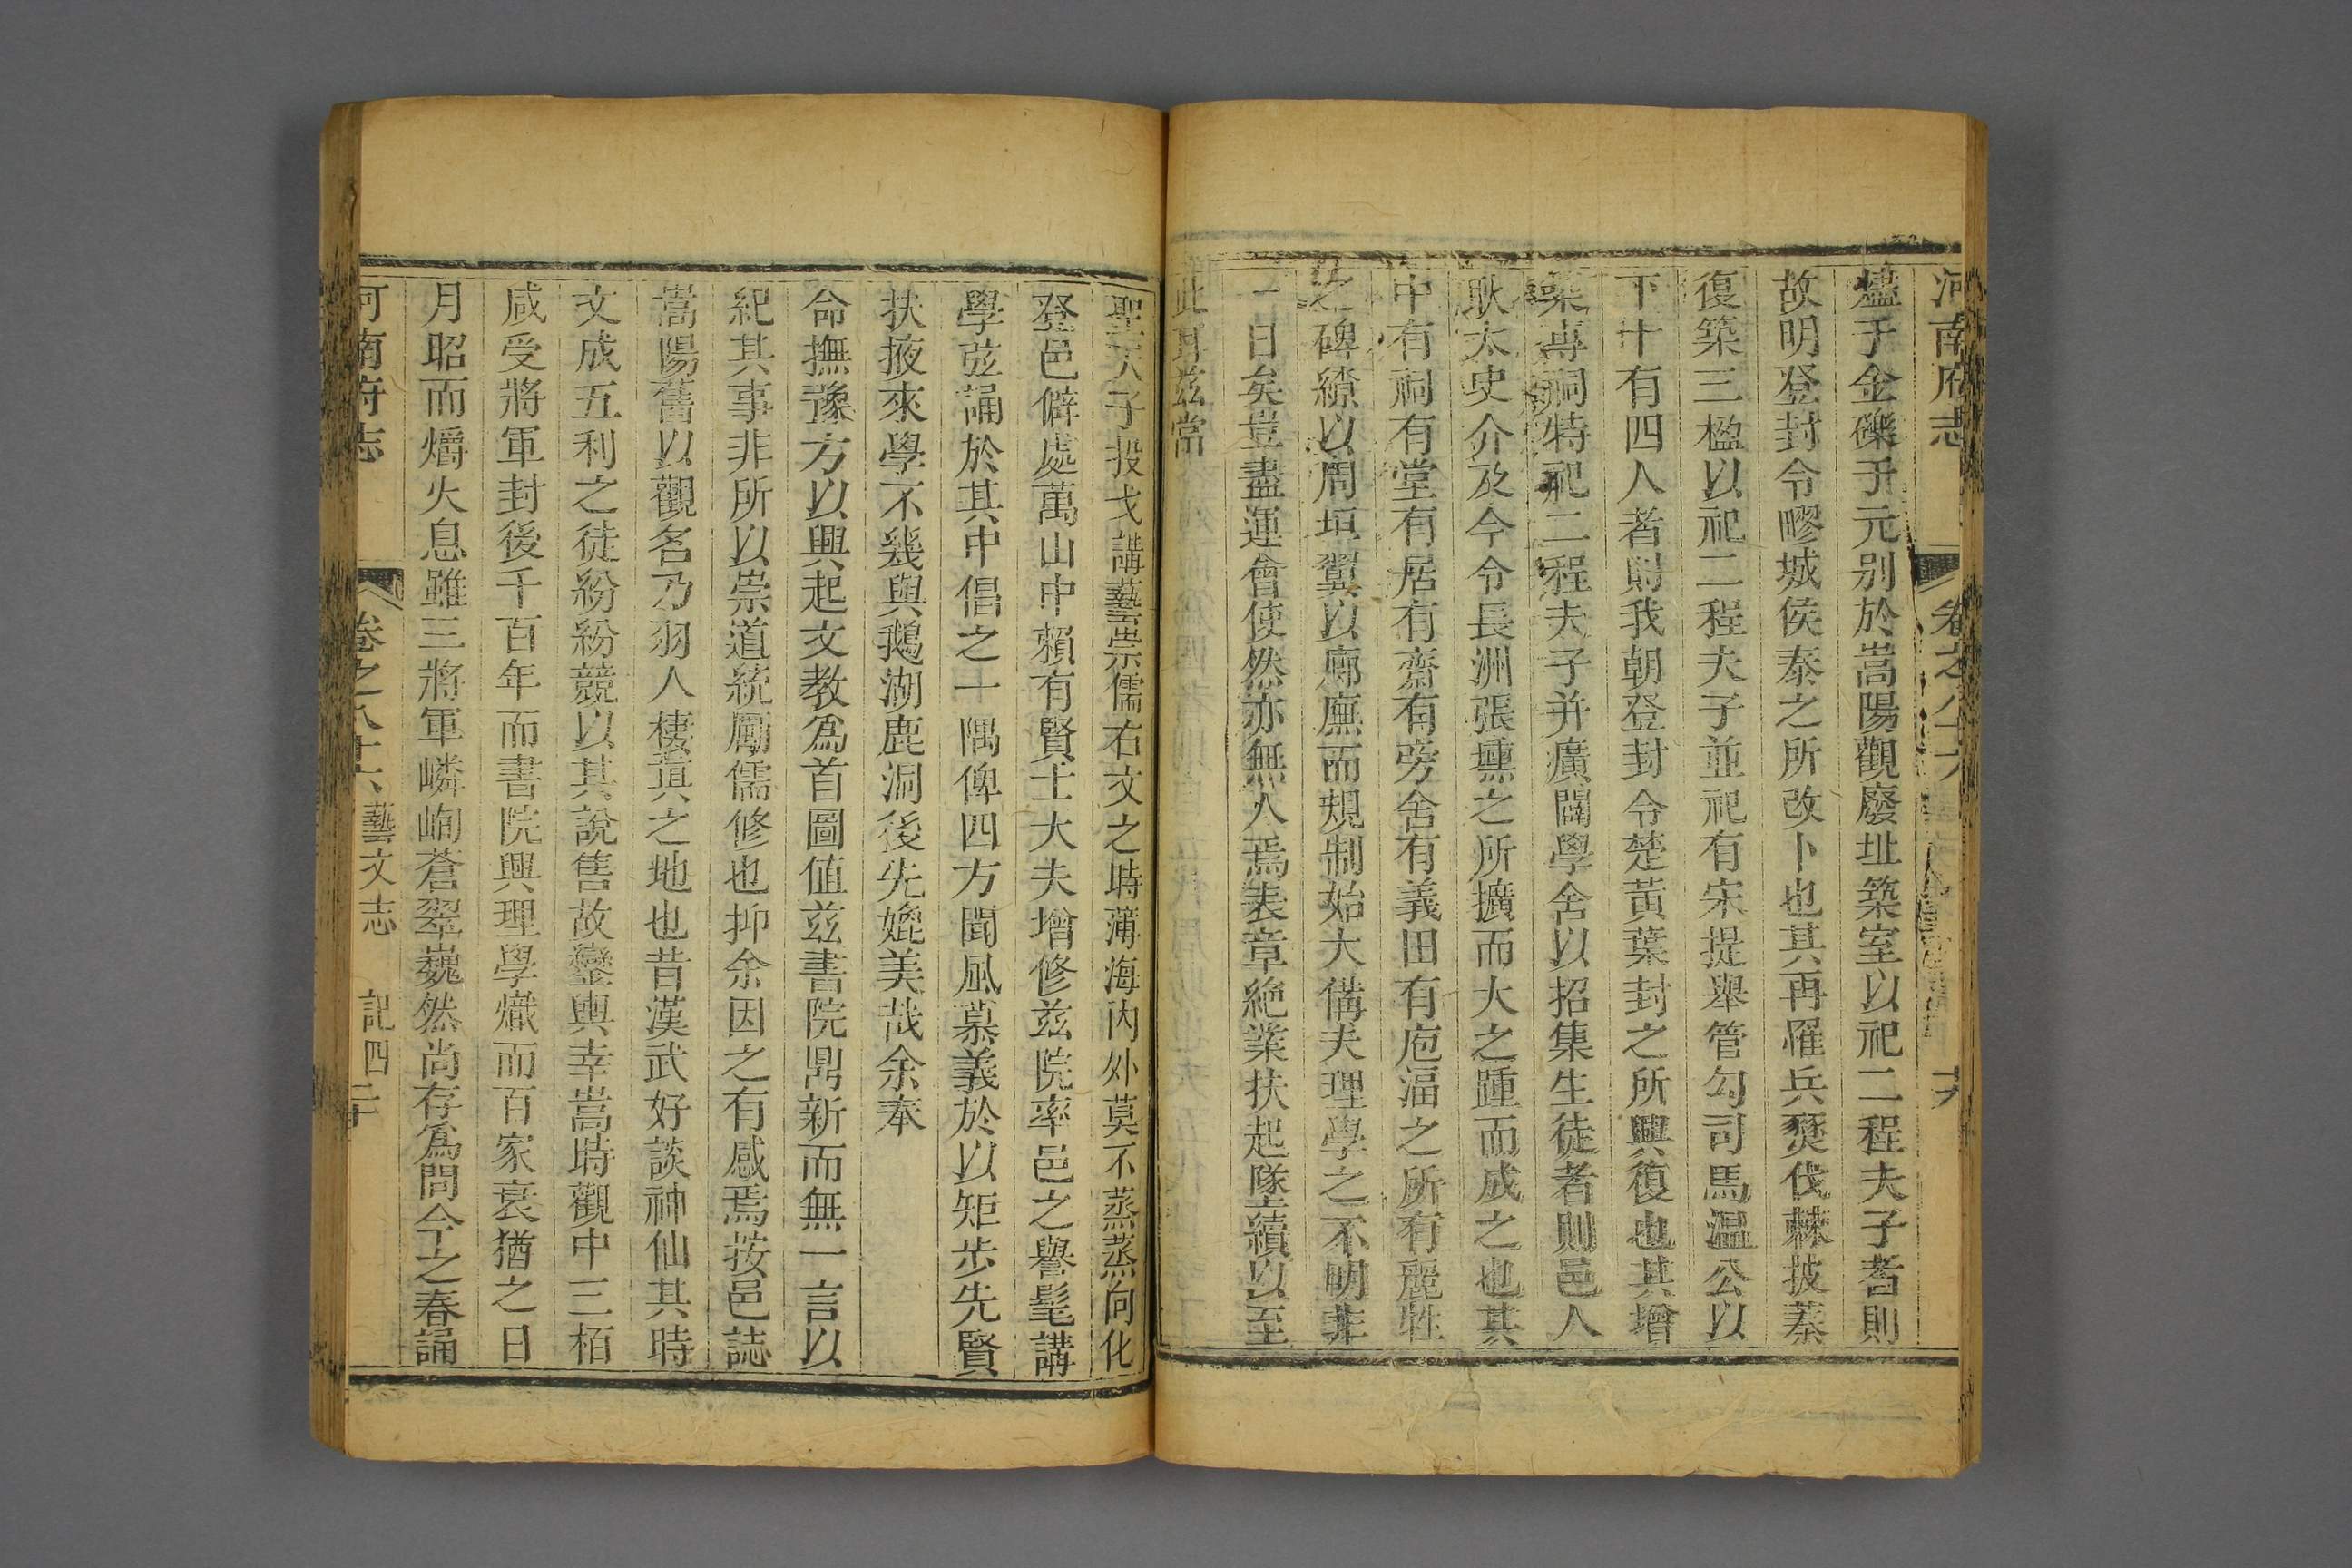 河南府志 卷之八十六
燼于金礫于元别於嵩陽觀廢址築室以祀二程夫子者則
故明登封令郾城侯泰之所改卜也其再罹兵燹伐棘披蓁
復築三楹以祀二程夫子並祀有宋提舉管勾司馬溫公以
下十有四人者則我朝登封令楚黃葉封之所興復也其增
築專祠特祀二程夫子并廣闢學舍以招集生徒者則邑人
耿太史介及今令長洲張壎之所擴而大之踵而成之也其
中有祠有堂有居有齋有旁舍有義田有庖湢之所有麗牲
之碑繚以周垣翼以廊廡而規制始大備夫理學之不明非
一日矣豈盡運會使然亦無人焉表章絶業扶起墜續以至
此耳兹當
聖天子投戈講藝崇儒右文之時薄海内外莫不蒸蒸向化
登邑僻處萬山中賴有賢士大夫增修兹院率邑之譽髦講
學弦誦於其中倡之一隅俾四方聞風慕義於以矩步先賢
扶掖來學不幾與鵝湖鹿洞後先媲美哉余奉
命撫豫方以興起文教爲首圖値兹書院鼎新而無一言以
紀其事非所以崇道統勵儒修也抑余因之有感焉按邑誌
嵩陽舊以觀名乃羽人棲真之地也昔漢武好談神仙其時
文成五利之徒紛紛競以其說售故鑾輿幸嵩時觀中三栢
咸受將軍封後千百年而書院興理學熾而百家衰猶之日
月昭而爝火息雖三將軍嶙峋蒼翠巍然尚存爲問今之春誦
河南府志 卷之八十六 藝文志 記四 二十